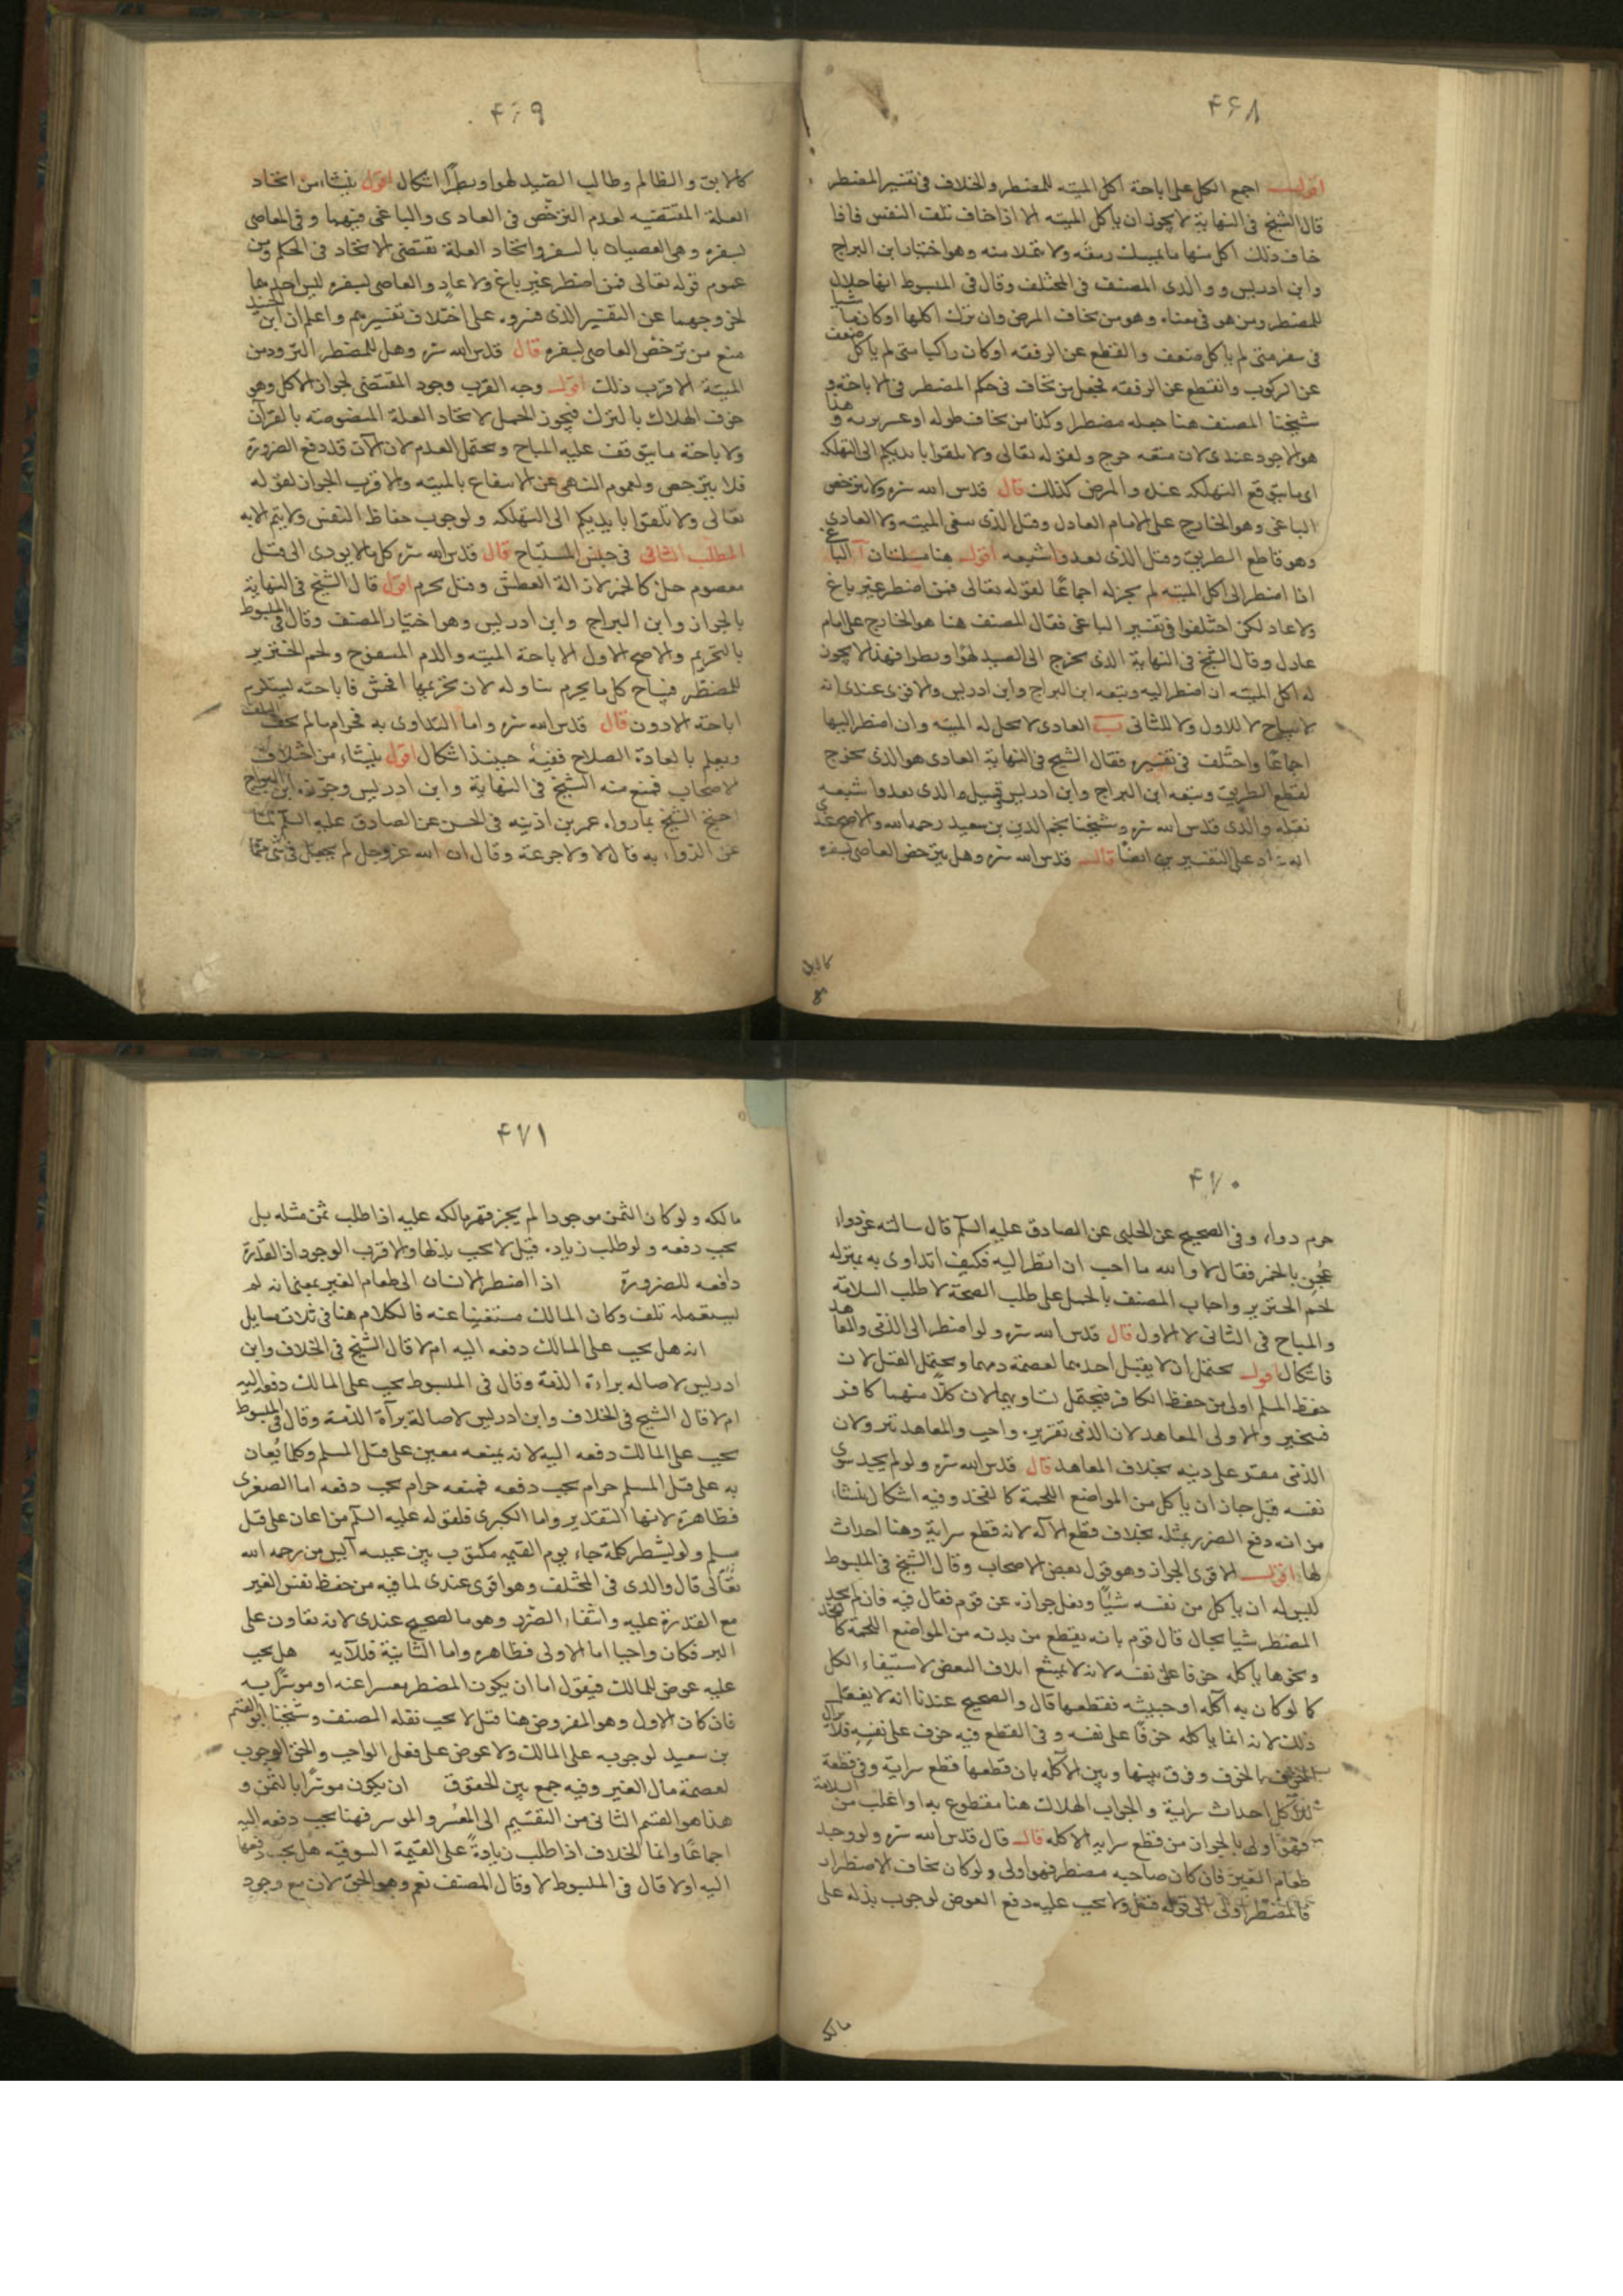 ۴۶۸
اقول اجمع الكل على اباحة اكل الميته للمضطر والخلاف فى تفسير المضطر
قال الشيخ فى النهاية لا يجوز ان ياكل الميته الا اذا خاف تلف النفس فاذا
خاف ذلك اكل منها ما يمسك رمقه ولا يتملا منه وهو اختيار ابن البراج
وابن ادريس ووالدى المصنف فى المختلف وقال فى المبسوط انها حلال
للمضطر ومن هو فى معناه وهو من يخاف المرض وان ترك اكلها او كان ماشيا
فى سفر متى لم ياكل ضعف وانقطع عن الرفقه او كان راكبا متى لم ياكل ضعف
عن الركوب وانقطع عن الرفقه فجعل من يخاف فى حكم المضطر فى الاباحة و
شيخنا المصنف هنا جعله مضطرا وكذا من يخاف طوله او عسر برئه و هذا
هو الاجود عندى لان منعه حرج ولقوله تعالى ولا تلقوا بايديكم الى التهلكه
اى ما يتوقع التهلكه عنده والمرض كذلك قال قدس الله سره ولا يترخص
الباغى وهو الخارج على الامام العادل وقيل الذى يبغى الميته ولا العادى
وهو قاطع الطريق وقيل الذى يعدوا شبعه اقول هنا مسئلتان آ الباغى
اذا اضطر الى اكل الميته لم يجز له اجماعا لقوله تعالى فمن اضطر غير باغ
ولا عاد لكن اختلفوا فى تفسير الباغى فقال المصنف هنا هو الخارج على امام
عادل وقال الشيخ فى النهاية الذى يخرج الى الصيد لهوا وبطرا فهذا لا يجوز
له اكل الميته ان اضطر اليه وتبعه ابن البراج وابن ادريس والاقوى عندى انه
لا يباح لا للاول ولا للثانى ب العادى لا يحل له الميته وان اضطر اليها
اجماعا واختلف فى تفسيره فقال الشيخ فى النهاية العادى هو الذى يخرج
لقطع الطريق وتبعه ابن البراج وابن ادريس وقيل والذى يعدوا شبعه
نقله والدى قدس الله سره وشيخنا نجم الدين بن سعيد رحمه الله والاصح عندى
على التفسيرين ايضا قال قدس الله سره وهل يترخص العاصى بسفره
كالابق
۴۶۹
كالابق والظالم وطالب الصيد لهوا وبطرا اشكال اقول ينشاء من اتحاد
العلة المقتضيه لعدم الترخص فى العادى والباغى فيهما وفى العاصى
بسفره وهى العصيان بالسفر واتحاد العلة تقتضى الاتحاد فى الحكم ومن
عموم قوله تعالى فمن اضطر غير باغ ولا عاد والعاصى بسفره ليس احدهما
لخروجهما عن التفسير الذى فسروه على اختلاف تفسيرهم واعلم ان ابن الجنيد
منع من ترخص العاصى بسفره قال قدس الله سره وهل للمضطر التزود من
الميتة الاقرب ذلك اقول وجه القرب وجود المقتضى لجواز الاكل وهو
خوف الهلاك بالترك فيجوز الحمل لاتحاد العلة المنصوصة بالقرآن
ولاباحة ما يتوقف عليه المباح ويحتمل العدم لان الآن قد دفع الضرورة
فلا يترخص ولعموم النهى عن الانتفاع بالميته والاقرب الجواز لقوله
تعالى ولا تلقوا بايديكم الى التهلكه ولوجوب حفاظ النفس ولا يتم الا به
المطلب الثانى فى جنس المستباح قال قدس الله سره كل ما لا يودى الى قتل
معصوم حل كالخمر لازالة العطش وقيل محرم اقول قال الشيخ فى النهاية
بالجواز وابن البراج وابن ادريس وهو اختيار المصنف وقال فى المبسوط
بالتحريم والاصح الاول لاباحة الميته والدم المسفوح ولحم الخنزير
للمضطر فيباح كل ما يحرم تناوله لان تحريمها افحش فاباحته يستلزم
اباحة الادون قال قدس الله سره واما التداوى به فحرام ما لم يخف التلف
ويعلم بالعادة الصلاح ففيه حينئذ اشكال اقول ينشاء من اختلاف
الاصحاب فمنع منه الشيخ فى النهاية وابن ادريس وجوزه ابن البراج
احتج الشيخ بما رواه عمر بن اذينه فى الحسن عن الصادق عليه السلم
عن الدواء به قال لا ولا جرعة وقال ان الله عز وجل لم يجعل فى شى مما
۴۷۰
حرم دواء وفى الصحيح عن الحلبى عن الصادق عليه السلم قال سالته عن دواء
عجن بالخمر فقال لا والله ما احب ان انظر اليه فكيف اتداوى به بمنزله
لحم الخنزير واجاب المصنف بالحمل على طلب الصحة لا طلب السلامة
والمباح فى الثانى لا الاول قال قدس الله سره ولو اضطر الى الذمى والمعاهد
فاشكال اقول يحتمل ان لا يقتل احدهما لعصمة دمهما ويحتمل القتل لان
حفظ المسلم اولى من حفظ الكافر فيحتمل تساويهما لان كلا منهما كافر
فيتخير والاولى المعاهد لان الذمى تقريره واجب والمعاهد ولان
الذمى مقر على دينه بخلاف المعاهد قال قدس الله سره ولو لم يجد سوى
نفسه قيل جاز ان ياكل من المواضع اللحمة كالفخذ وفيه اشكال ينشاء
من انه دفع الضرر بمثله بخلاف قطع الآكله لانه قطع سراية وهنا احداث
لها اقول الاقوى الجواز وهو قول بعض الاصحاب وقال الشيخ فى المبسوط
ليس له ان ياكل من نفسه شيئا ونقل جوازه عن قوم فقال فيه فان لم يجد
المضطر شيا بحال قال قوم بانه يقطع من بدنه من المواضع اللحمة كالفخذ
ونحوها ياكله خوفا على نفسه لانه لا يمتنع اتلاف البعض لاستبقاء الكل
كما لو كان به آكله او خبيثه فقطعها قال والصحيح عندنا انه لا يفعل
ذلك لانه انما ياكله خوفا على نفسه وفى القطع فيه خوف على نفسه فلا يزال
الخوف بالخوف وفرق بينها وبين الآكله بان قطعها قطع سراية وفى قطعة
كل احداث سراية والجواب الهلاك هنا مقطوع به او اغلب من السلامة
فهو اولى بالجواز من قطع سراية الاكله قال قال قدس الله سره ولو وجد
طعام الغير فان كان صاحبه مضطر فهو اولى ولو كان يخاف الاضطرار
فالمضطر اولى الى قوله قتل ولا يجب عليه دفع العوض لوجوب بذله على
مالكه
۴۷۱
مالكه ولو كان الثمن موجودا لم يجز قهر مالكه عليه اذا طلب ثمن مثله بل
يجب دفعه ولو طلب زياده قيل لا يجب بذلها والاقرب الوجوب اذ القدرة
دافعه للضرورة اذا اضطر الانسان الى طعام الغير بمعنى انه لو لم
يستعمله تلف وكان المالك مستغنيا عنه فالكلام هنا فى ثلاث مسايل
انه هل يجب على المالك دفعه اليه ام لا قال الشيخ فى الخلاف وابن
ادريس لاصاله براءة الذمة وقال فى المبسوط يجب على المالك دفعه اليه
ام لا قال الشيخ فى الخلاف وابن ادريس لاصالة برآة الذمة وقال فى المبسوط
يجب على المالك دفعه اليه لانه بمنعه معين على قتل المسلم وكلما يعان
به على قتل المسلم حرام يجب دفعه فمنعه حرام يجب دفعه اما الصغرى
فظاهرة لانها التقدير واما الكبرى فلقوله عليه السلم من اعان على قتل
مسلم ولو بشطر كلمة جاء يوم القيمه مكتوب بين عينيه آيس من رحمه الله
تعالى قال والدى فى المختلف وهو اقوى عندى لما فيه من حفظ نفس الغير
مع القدرة عليه وانتفاء الضرر وهو الصحيح عندى لانه تعاون على
البر فكان واجبا اما الاولى فظاهره واما الثانية فللآيه هل يجب
عليه عوض للمالك فيقول اما ان يكون المضطر معسرا عنه او موسرا به
فان كان الاول وهو المفروض هنا قيل لا يجب نقله المصنف وشيخنا ابو القسم
بن سعيد لوجوبه على المالك ولا عوض على فعل الواجب والحق الوجوب
لعصمة مال الغير وفيه جمع بين الحقوق ان يكون موسرا بالثمن و
هذا هو القسم الثانى من التقسيم الى المعسر والموسر فهنا يجب دفعه اليه
اجماعا وانما الخلاف اذا طلب زيادة على القيمة السوقيه هل يجب دفعها
اليه او لا قال فى المبسوط لا وقال المصنف نعم وهو الحق لان مع وجود